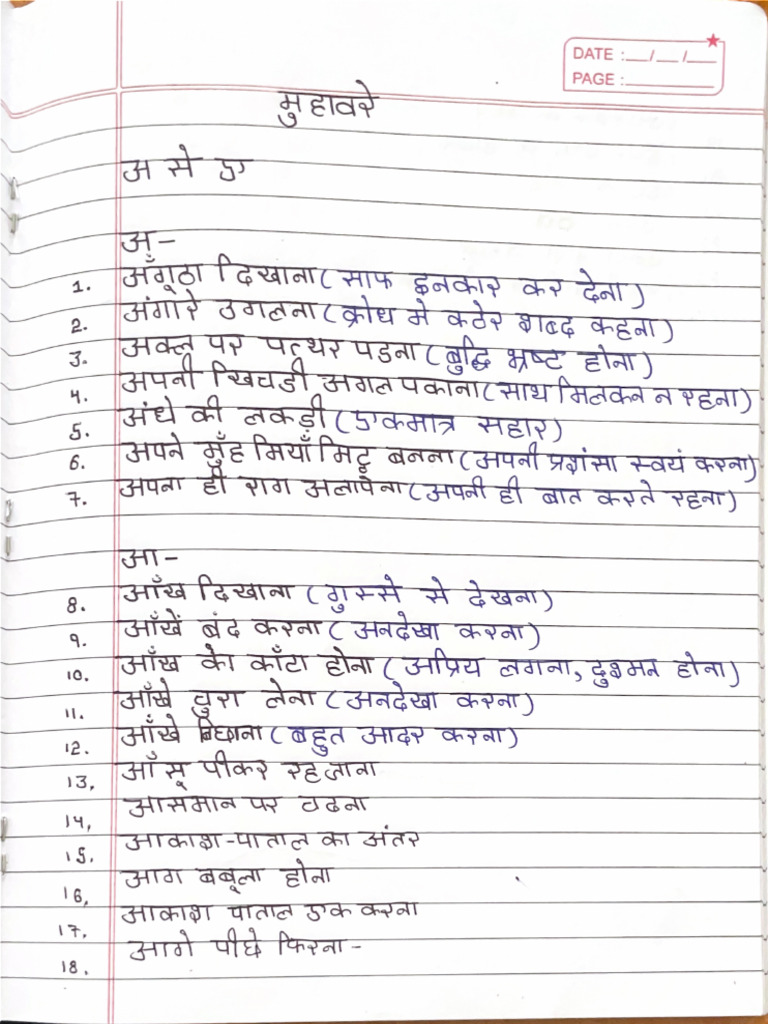 DATE :__/__/__
PAGE :________
मुहावरे
अ से ए
अ-
1. अँगूठा दिखाना (साफ इनकार कर देना)
2. अंगारे उगलना (क्रोध मे कठोर शब्द कहना)
3. अक्ल पर पत्थर पडना (बुद्धि भ्रष्ट होना)
4. अपनी खिचडी अगल पकाना (साथ मिलकन न रहना)
5. अंधे की लकड़ी (एकमात्र सहार)
6. अपने मुँह मियाँ मिटू बनना (अपनी प्रशंसा स्वयं करना)
7. अपना ही राग अलापना (अपनी ही बात करते रहना)
आ-
8. आँख दिखाना (गुस्से से देखना)
9. आँखें बंद करना (अनदेखा करना)
10. आँख का काँटा होना (अप्रिय लगना, दुश्मन होना)
11. आँखे चुरा लेना (अनदेखा करना)
12. आँखे बिछाना (बहुत आदर करना)
13, आँसू पीकर रहजाना
14, आसमान पर चढना
15. आकाश-पाताल का अंतर
16, आग बबूला होना
17. आकाश पाताल एक करना
18. आगे पीछे फिरना-